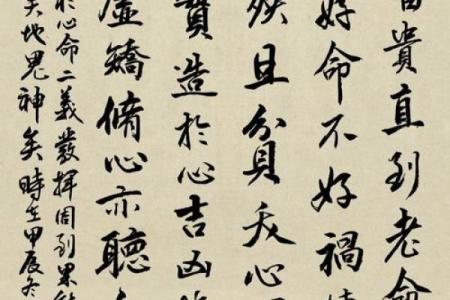 富貴直到老命
好命不好禍
殃且貧夭心
實造於心吉凶
虛矯脩心亦聽
於心命二義發揮周到果能
天地鬼神矣時在甲辰冬